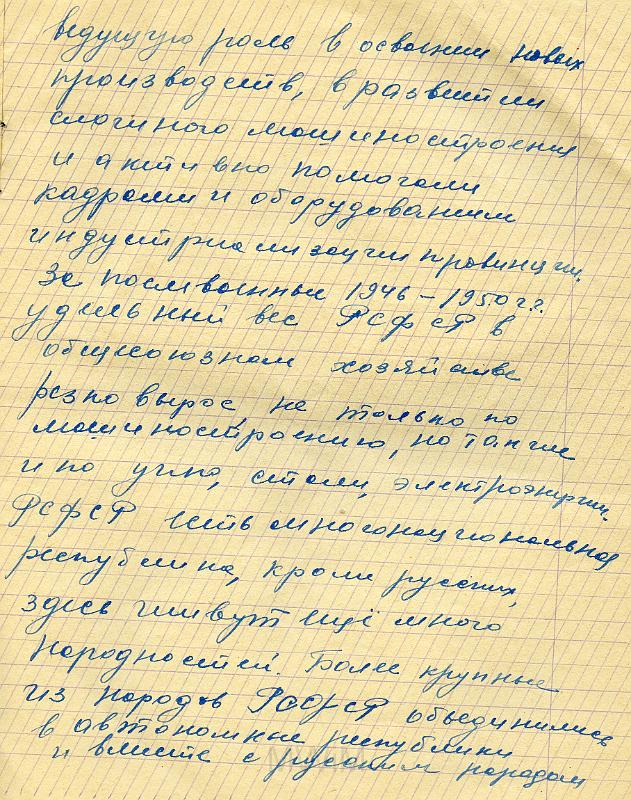 ведущую роль в освоении новых
производств, в развитии
сложного машиностроения
и активно помогали
кадрами и оборудованием
индустриализации провинции.
За послевоенные 1946-1950 г.г.
удельный вес РСФСР в
общесоюзном хозяйстве
резко вырос, не только по
машиностроению, но также
и по углю, стали, электроэнергии.
РСФСР есть многонациональная
республика, кроме русских,
здесь живут ещё много
народностей. Более крупные
из народов РСФСР объединились
в автономные республики
и вместе с русским народом